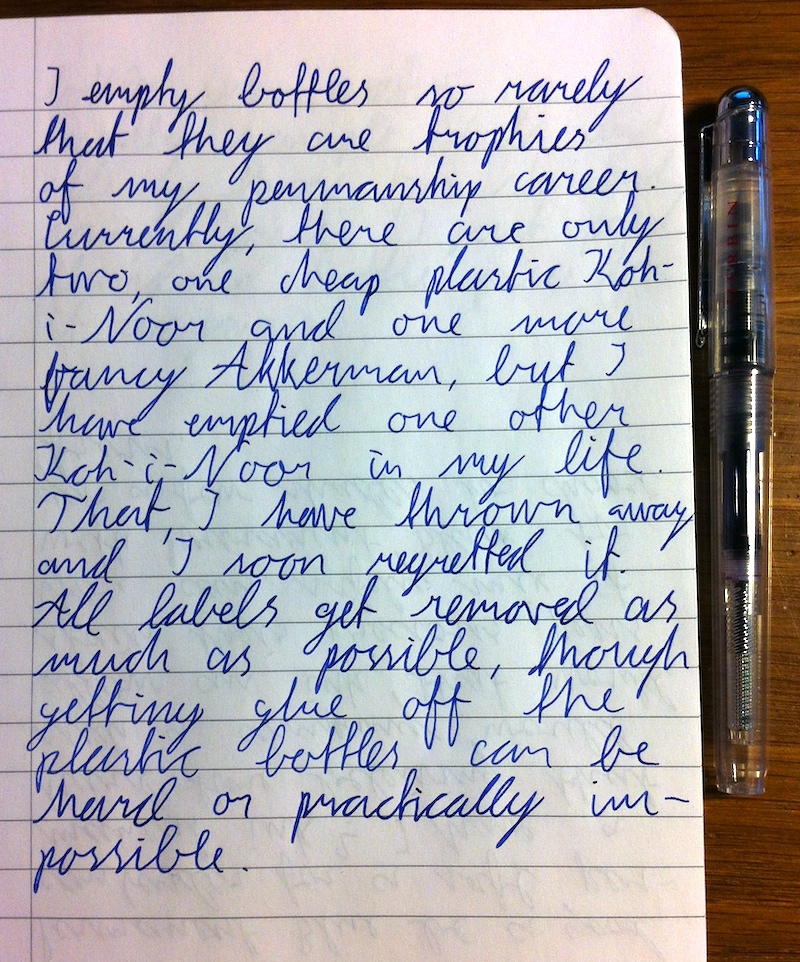 I empty bottles so rarely
that they are trophies
of my penmanship career.
Currently, there are only
two, one cheap plastic Koh-
i-Noor and one more
fancy Akkerman, but I
have emptied one other
Koh-i-Noor in my life.
That, I have thrown away
and I soon regretted it.
All labels get removed as
much as possible, though
getting glue off the
plastic bottles can be
hard or practically im-
possible.